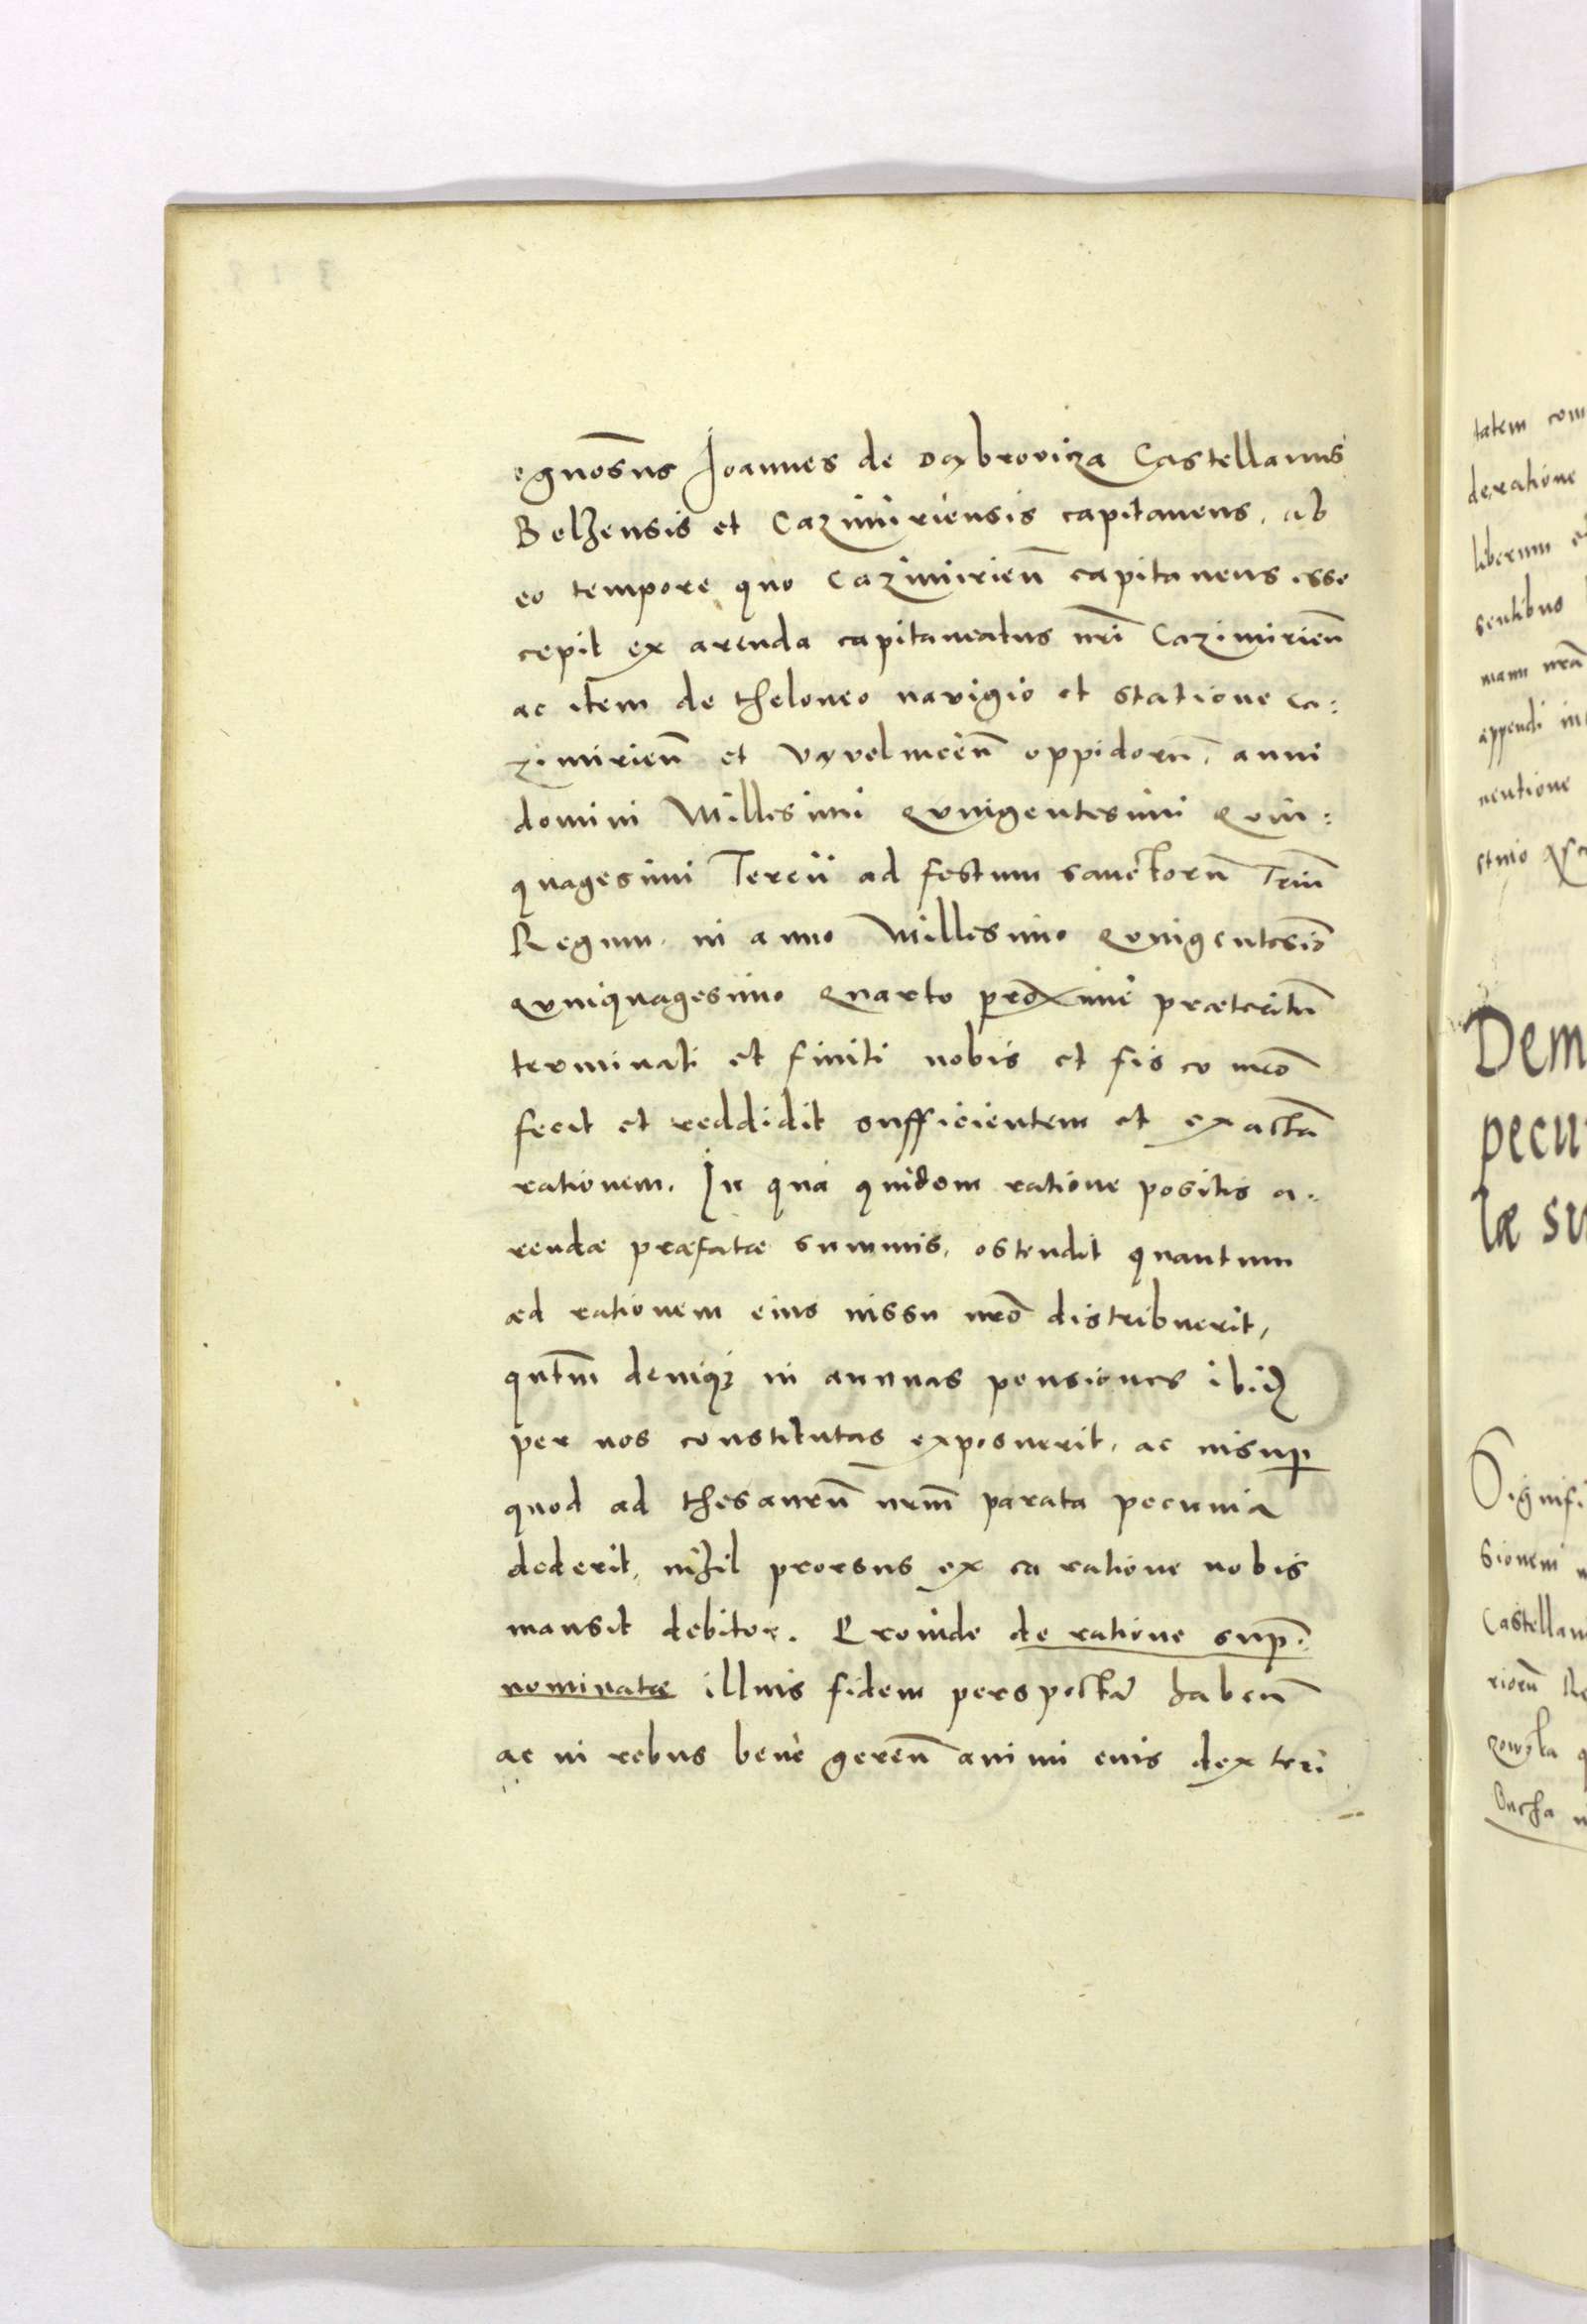 egnosus Joannes de Dąbrovicza Castellanus
Belzensis et Cazimiriensis capitaneus, ab
eo tempore quo Cazimirien̄ capitaneus esse
cepit ex arenda capitaneatus nrī Cazimirien̄
ac item de theloneo navigio et statione Ca:
zimirien̄ et Vąvolnicen̄ oppidorū, anni
domini Millesimi Quingentesimi Quin:
quagesimi Tercii ad festum sanctorū Triū
Regum in anno Millesimo Quingentesiō
Quinquagesimo Quarto proxime præteritū
terminati et finiti nobis et fisco nrō
fecit et reddidit sufficientem et exactā
rationem. In qua quidem ratione positis a:
rendæ præfatæ summis, ostendit quantum
ad rationem eius iussu nrō distribuerit,
qntm̄ deniqꝫ in annuas pensiones ibid
per nos constitutas exposuerit, ac insuꝑ
quod ad thesaurū nrm̄ parata pecunia
dederit, nihil prorsus ex ea ratione nobis
mansit debitor. Proinde de ratione sup:
nominatæ illius fidem perspectā haben̄
ac in rebus bene geren̄ animi eius dexteri
tatem com
deratione
liberum
sentibus
manu nrā
appendi in
nentione
stnio
Dem
pecu
læ su
Signifi
sionem
Castellan
riorū Re